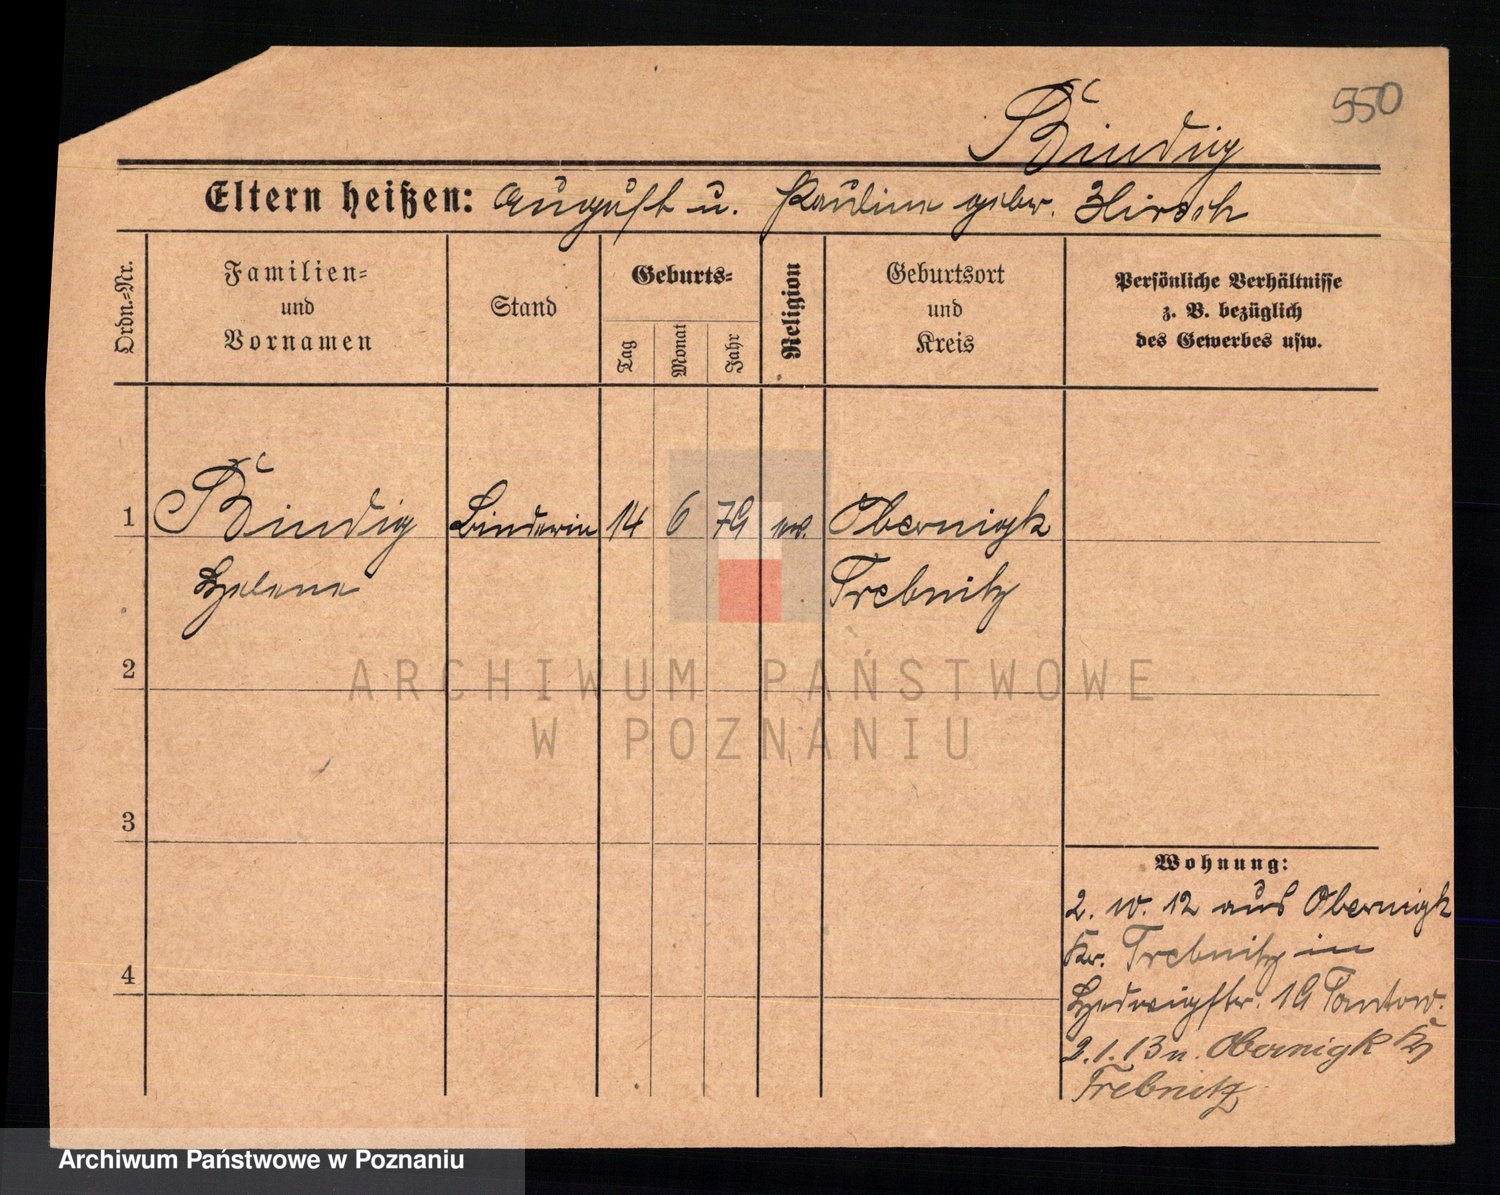 550
Bindig
Eltern heißen: August u. Pauline gebr. Hirsch
Ordn.=Nr.
Familien=
und
Vornamen
Stand
Geburts=
Tag
Monat
Jahr
Religion
Geburtsort
und
Kreis
Persönliche Verhältnisse
z. B. bezüglich
des Gewerbes usw.
1 Bindig Binderin 14 6 79 ev. Obernigk
Helene Trebnitz
2
ARCHIWUM PAŃSTWOWE
W POZNANIU
3
4
Wohnung:
2. 10. 12 aus Obernigk
Kr. Trebnitz in
Hedwigstr. 19
2. 1. 13 n. Obernigk Kr
Trebnitz
Archiwum Państwowe w Poznaniu